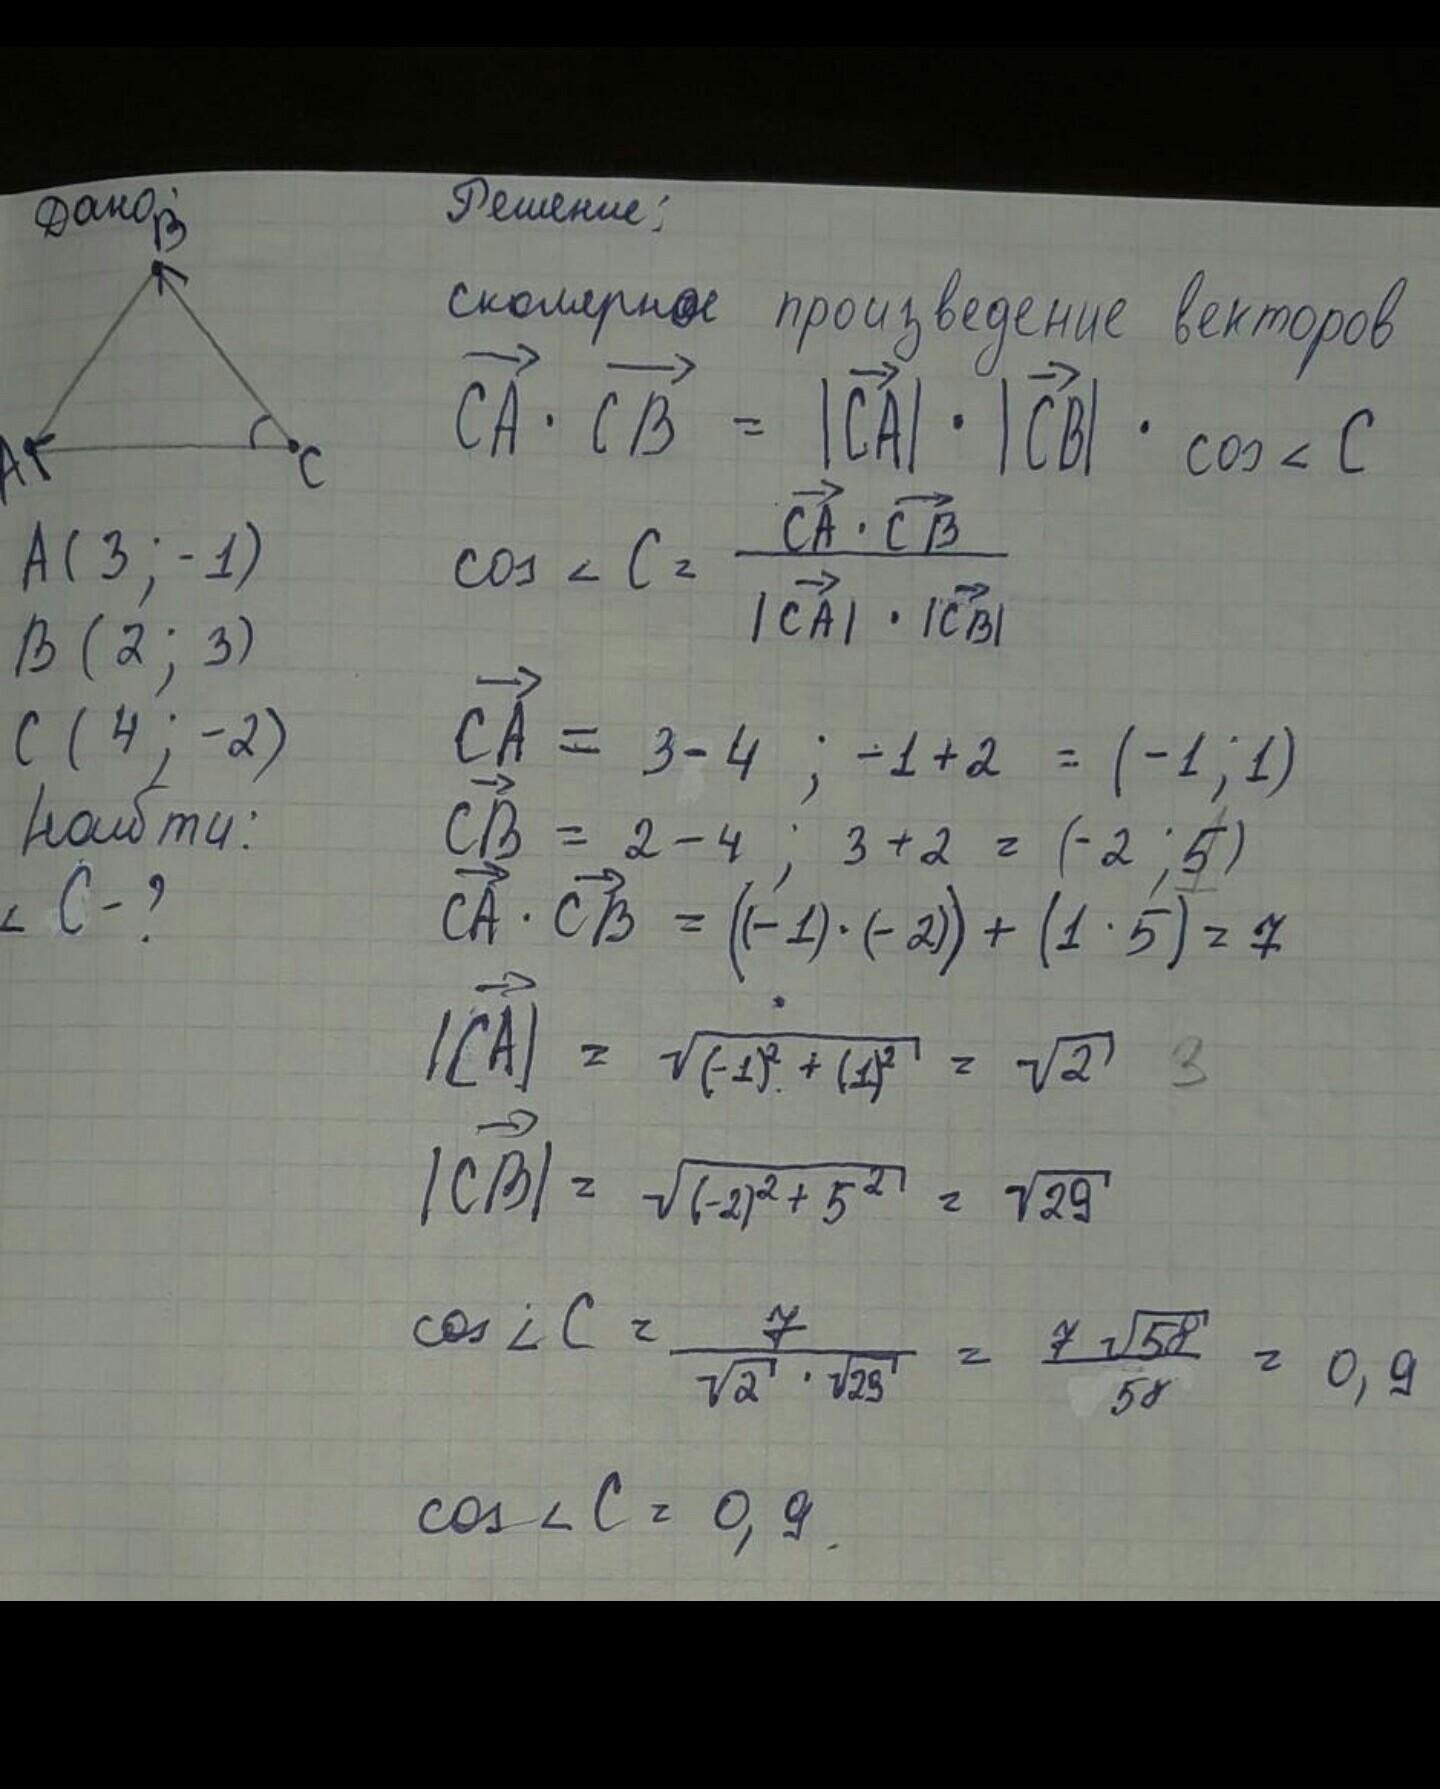 Дано:
B
A
C
A(3; -1)
B(2; 3)
C(4; -2)
Найти:
∠C - ?
Решение:
скалярное произведение векторов
CA · CB = |CA| · |CB| · cos∠C
cos∠C = CA · CB / |CA| · |CB|
CA = 3-4 ; -1+2 = (-1; 1)
CB = 2-4 ; 3+2 = (-2; 5)
CA · CB = ((-1)·(-2)) + (1·5) = 7
|CA| = √(-1)² + (1)² = √2 3
|CB| = √(-2)² + 5² = √29
cos∠C = 7 / √2 · √29 = 7√58 / 58 = 0,9
cos∠C = 0,9.